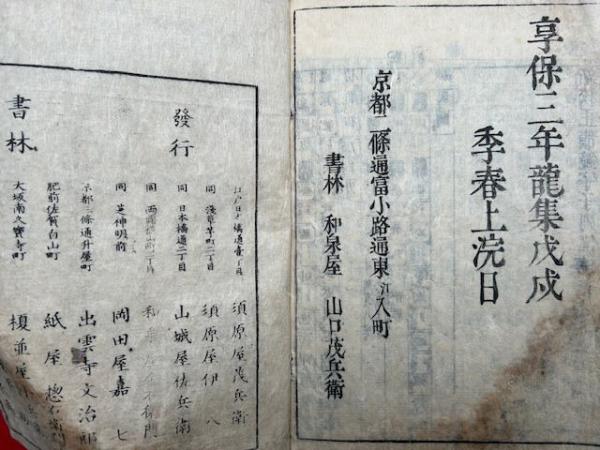 享保三年龍集戊戌
季春上浣日
京都二條通富小路通東江入町
書林 和泉屋 山口茂兵衛
發行
江戸日本橋通壹丁目 須原屋茂兵衛
同 淺草茅町二丁目 須原屋伊八
同 日本橋通二丁目 山城屋佐兵衛
同
同 芝神明前 岡田屋嘉七
京都三條通升屋町 出雲寺文治郎
肥前佐賀白山町 紙屋惣右衛門
大坂南久寶寺町 榎並屋
書林